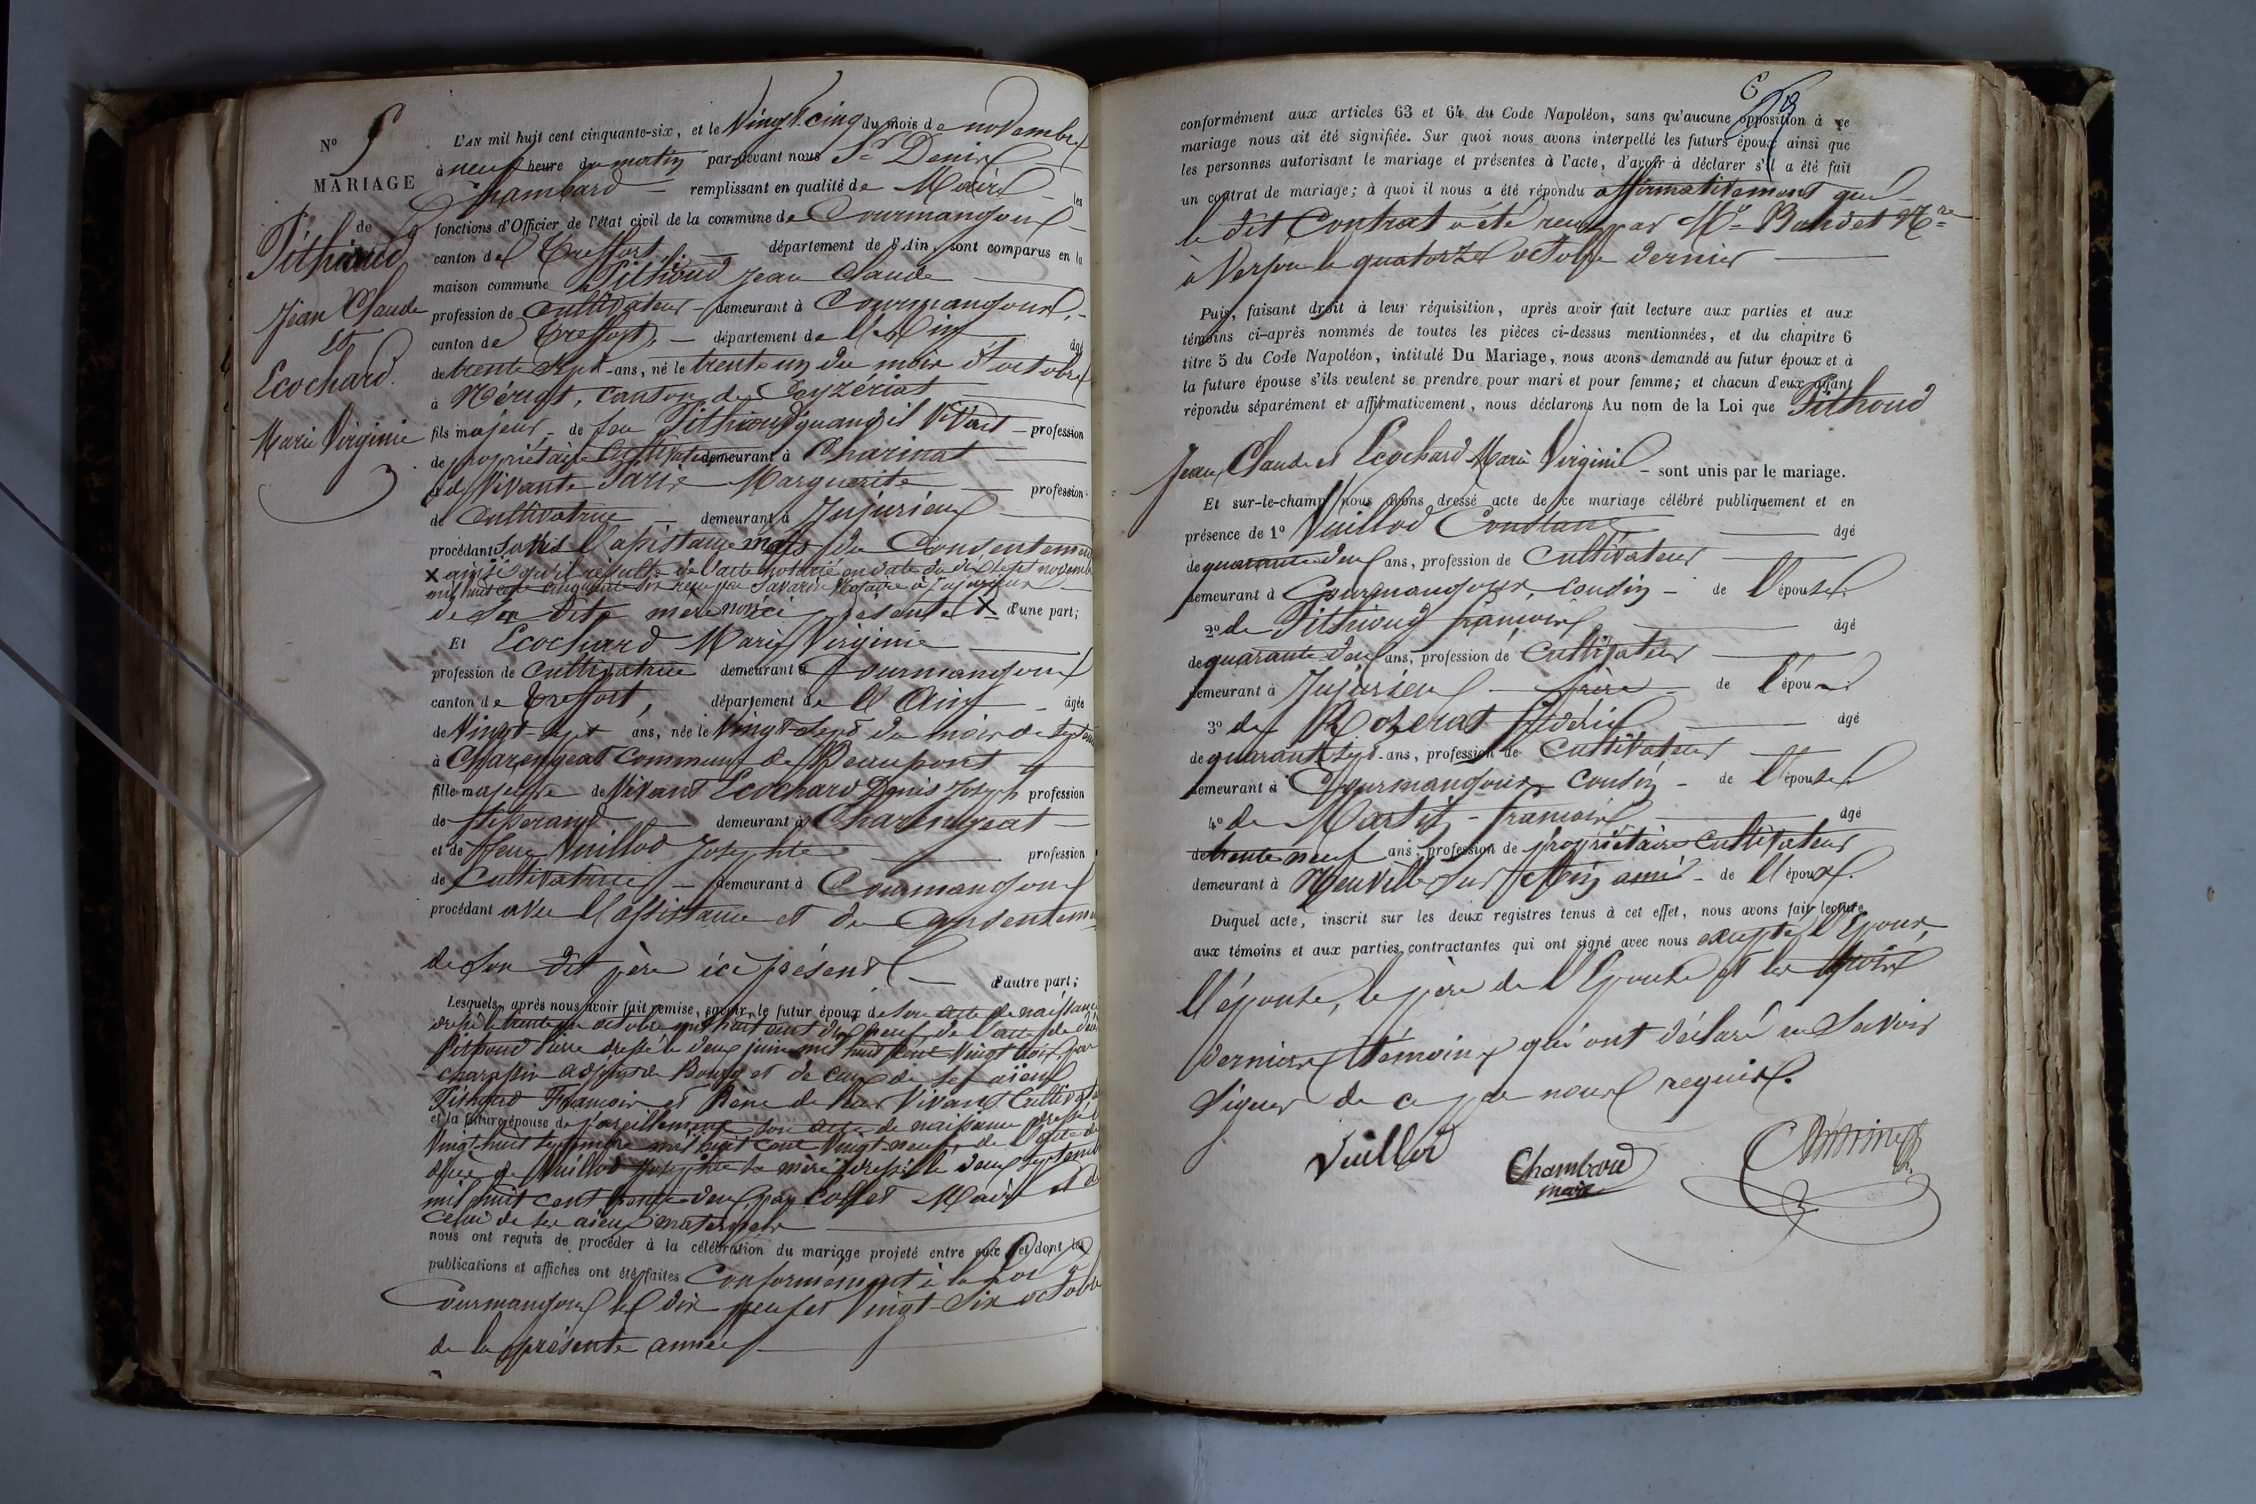 N° 5
MARIAGE
de
Pithioud
Jean Claude
et
Ecochard
Marie Virginie
L'AN mil huit cent cinquante-six, et le Vingt cinq du mois de novembre
à neuf heure du matin par-devant nous Sr Denis
Chambard remplissant en qualité de Maire les
fonctions d'Officier de l'état civil de la commune de Courmangoux
canton de Treffort, département de l'Ain, sont comparus en la
maison commune Pithioud Jean Claude
profession de cultivateur demeurant à Courmangoux,
canton de Treffort, département de l'Ain âgé
de trente sept ans, né le trente un du mois d'octobre
à canton de Ceyzériat
fils majeur de feu Pithioud quand il vivait profession
de propriétaire cultivateur demeurant à Charinat
et de Vivante Marguerite profession
de Cultivatrice demeurant à Jujurieux
procédant sans l'assistance mais du Consentement
X ainsi qu'il résulte de l'acte notarié en date du dix sept novembre
mil huit cent cinquante six reçu par Savarin Notaire à Jujurieux
de sa dite mère non ici présente X d'une part;
Et Ecochard Marie Virginie
profession de cultivatrice demeurant à Courmangoux
canton de Treffort, département de l'Ain âgée
de Vingt-sept ans, née le Vingt-sept du mois de septembre
à Charengeat Commune de Beaupont
fille majeure de Vivant Ecochard Denis Joseph profession
de tisserand demeurant à Charengeat
et de feue Vuillod Josephte profession
de Cultivatrice demeurant à Courmangoux
procédant avec l'assistance et du Consentement
de son dit père ici présent d'autre part;
Lesquels, après nous avoir fait remise, savoir, le futur époux de son acte de naissance
dressé le trente un octobre mil huit cent dix neuf de l'acte de décès
Pithioud Pierre dressé le deux juin mil huit cent Vingt trois par
adjoint de Bourg et de ceux de ses aïeux
Pithioud François et
et la future épouse de pareillement son acte de naissance dressé le
Vingt-huit septembre mil huit cent Vingt-neuf, de l'acte de
décès de Vuillod Josephte sa mère dressé le deux septembre
mil huit cent trente-deux par Collet Maire et de
celui de ses aïeux maternels
nous ont requis de procéder à la célébration du mariage projeté entre eux et dont les
publications et affiches ont été faites Conformément à la Loi à
Courmangoux les dix neuf et Vingt-six octobre
de la présente année
conformément aux articles 63 et 64 du Code Napoléon, sans qu'aucune opposition à ce
mariage nous ait été signifiée. Sur quoi nous avons interpellé les futurs époux ainsi que
les personnes autorisant le mariage et présentes à l'acte, d'avoir à déclarer s'il a été fait
un contrat de mariage; à quoi il nous a été répondu affirmativement que
le dit Contrat a été reçu par Me Baudet Nre
à Verjon le quatorze octobre dernier
Puis, faisant droit à leur réquisition, après avoir fait lecture aux parties et aux
témoins ci-après nommés de toutes les pièces ci-dessus mentionnées, et du chapitre 6
titre 5 du Code Napoléon, intitulé Du Mariage, nous avons demandé au futur époux et à
la future épouse s'ils veulent se prendre pour mari et pour femme; et chacun d'eux ayant
répondu séparément et affirmativement, nous déclarons Au nom de la Loi que Pithioud
Jean Claude et Ecochard Marie Virginie sont unis par le mariage.
Et sur-le-champ nous avons dressé acte de ce mariage célébré publiquement et en
présence de 1° Vuillod Constant âgé
de quarante deux ans, profession de Cultivateur
demeurant à Courmangoux, cousin de l'épouse.
2° de Pithioud François âgé
de quarante deux ans, profession de cultivateur
demeurant à Jujurieux frère de l'époux.
3° de Rozerat Frédéric âgé
de quarante sept ans, profession de cultivateur
demeurant à Courmangoux cousin de l'épouse.
4° de François âgé
de trente neuf ans, profession de propriétaire cultivateur
demeurant à Neuville sur Ain ami de l'époux.
Duquel acte, inscrit sur les deux registres tenus à cet effet, nous avons fait lecture
aux témoins et aux parties contractantes qui ont signé avec nous excepté l'époux,
l'épouse, le père de l'Epouse et les trois
derniers témoins qui ont déclaré ne savoir
signer de ce par nous requis.
Vuillod
Chambard
maire